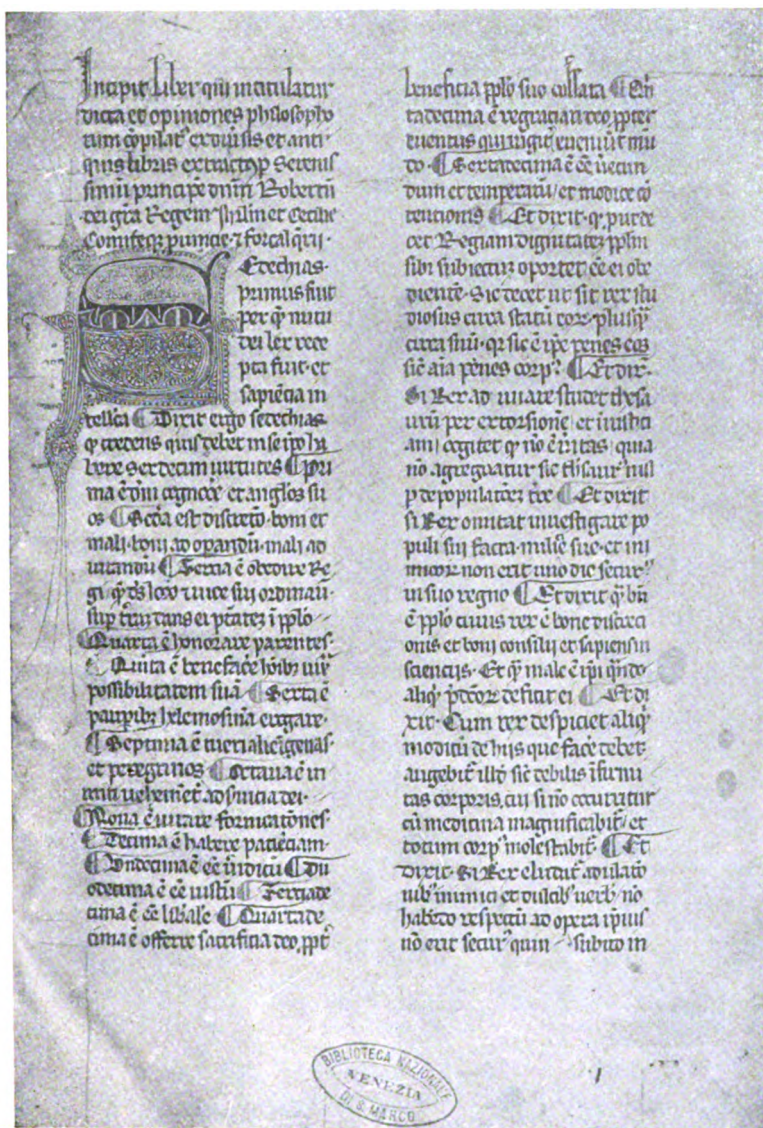 Incipit liber qui intitulatur
dicta et opiniones philosopho
rum cōpilat' ex diuisis et anti
quis libris extractꝫ p Serenis
simū principe dnm̄ Robertū
dei grā Regem Jhrlm et Cecilie
Comiteqꝫ puincie ⁊ forcalq̄rii ·
Setechias ·
primus fuit
per q̄ nutu
dei lex rece
pta fuit · et
sapiēcia in
tellc̄a ¶ Dixit ergo setechias
q̄ credens quis debet in se ip̄o ha
bere sexdecim uirtutes ¶ pri
ma ē dm̄ cognoc̄e et anglos su
os ¶ Scd̄a est discreto · boni et
mali · boni ad opandū · mali ad
uitandū ¶ Tercia ē obedire Re
gi q̄
¶ Quarta ē honorare parentes ·
¶ Quita ē beneface hoīb iux
possibilitatem suā ¶ Sexta ē
paupibꝫ helemosina erogare ·
¶ Septima ē tueri alienigenas
et peregrinos ¶ Octaua ē in
ad seruicia dei ·
¶ Nona ē uitare fornicatōnes ·
¶ Decima ē habere paciēciam ·
¶ Undecima ē eē uidicū ¶ Du
odecima ē eē iustū ¶ Terciade
cima ē eē libale ¶ Quartade
cima ē offerre sacrificia deo, ppt
beneficia pplo suo collata ¶ Qn̄
tadecima ē regraciari deo ppter
euentus qui eueniūt mū
do · ¶ Sextadecima ē eē uecun
dum et temperatū / et modice cō
tencionis ¶ Et dixit · q̄ · put de
cet Regiam dignitatē pplm
sibi subiectū oportet eē ei obe
dientē · Sic decet ut sit rex stu
diosus circa statū eoꝝ · plusq̄
circa suū · qꝛ sic ē ip̄e penes eos
sic aīa penes corpꝰ ¶ Et dix̄ ·
Si Rex ad studet thesa
urū per extorsionē / et iniusti
am / cogitet q̄ nō quia
nō agregatur sic thesaur' nisi
p de populatōeꝫ ¶ Et dixit
si Rex omittat inuestigare po
puli sui facta · milicie sue · et ini
micoꝝ non erit uno die secur'
in suo regno ¶ Et dixit q̄ bn̄
ē pplo cuius rex ē bone discreci
onis et boni consilii et sapiens in
scienciis · Et q̄ male ē ip̄i qn̄do
aliq̄ p̄dcoꝝ deficit ei ¶ Et di
xit · Cum rex despiciet aliq̄
modicū de hiis que face debet
augebit illd sic debilis īfirmi
tas corporis, cui si nō occuratur
cū medicina magnificabit / et
totum corpꝰ molestabit · ¶ Et
dixit · Si Rex
inimici et dulcibꝰ uerbꝰ nō
habēdo respectū ad opera ipius
nō erit secur' quin subito in
BIBLIOTECA NAZIONALE
VENEZIA
DI S. MARCO